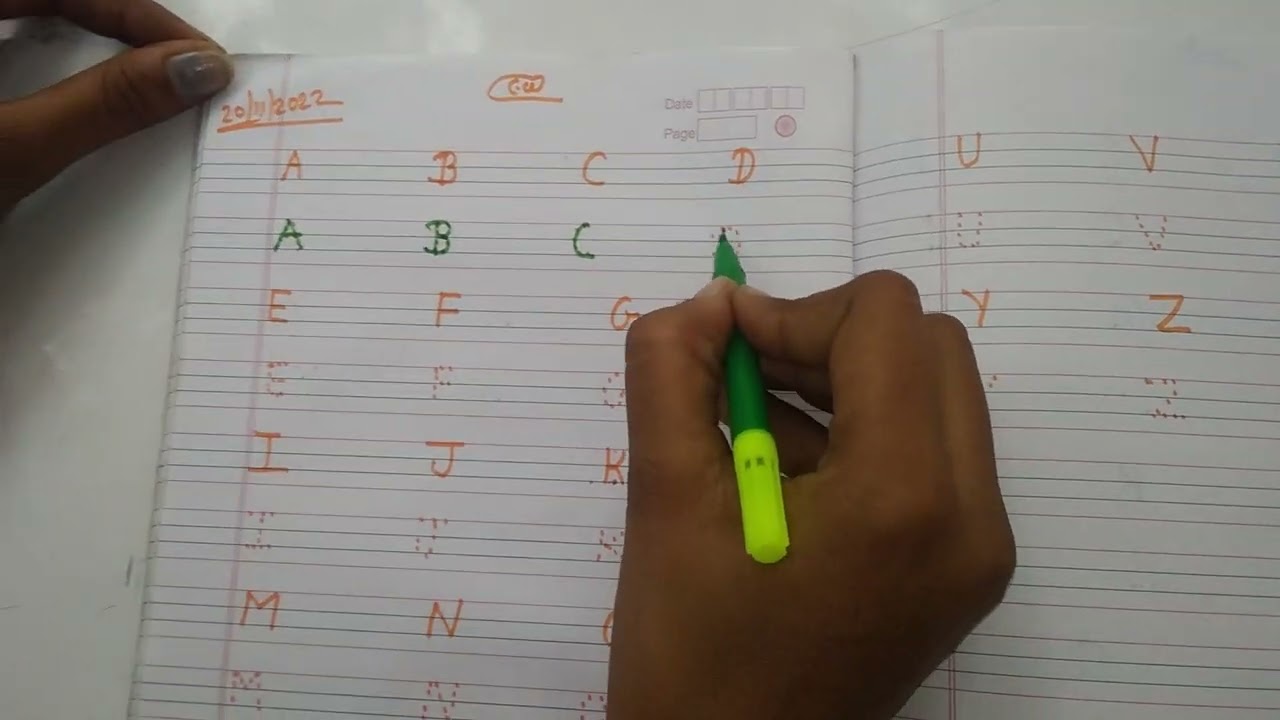 20/11/2022 C.W Date
Page
A B C D
A B C
E F G
E F G
I J K
I J K
M N
M N
U V
U V
Y Z
Z